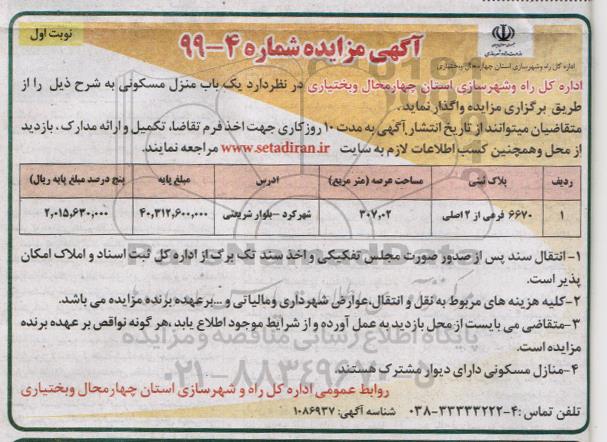 نوبت اول
آگهی مزایده شماره ۴-۹۹
اداره کل راه وشهرسازی استان چهارمحال وبختیاری
اداره کل راه وشهرسازی استان چهارمحال وبختیاری در نظردارد یک باب منزل مسکونی به شرح ذیل را از
طریق برگزاری مزایده واگذار نماید.
متقاضیان میتوانند از تاریخ انتشار آگهی به مدت ۱۰ روز کاری جهت اخذ فرم تقاضا، تکمیل و ارائه مدارک، بازدید
از محل وهمچنین کسب اطلاعات لازم به سایت www.setadiran.ir مراجعه نمایند.
ردیف پلاک ثبتی مساحت عرصه (متر مربع) ادرس مبلغ پایه پنج درصد مبلغ پایه ریال)
۱ ۶۶۷۰ فرعی از ۲ اصلی ۳۰۷,۰۲ شهرکرد -بلوار شریعتی ۴۰,۳۱۲,۶۰۰,۰۰۰ ۲,۰۱۵,۶۳۰,۰۰۰
۱- انتقال سند پس از صدور صورت مجلس تفکیکی و اخذ سند تک برگ از اداره کل ثبت اسناد و املاک امکان
پذیر است.
۲-کلیه هزینه های مربوط به نقل و انتقال،عوارض شهرداری ومالیاتی و ...برعهده برنده مزایده می باشد.
۳-متقاضی می بایست از محل بازدید به عمل آورده و از شرایط موجود اطلاع یابد ،هر گونه نواقص بر عهده برنده
مزایده است.
۴-منازل مسکونی دارای دیوار مشترک هستند.
روابط عمومی اداره کل راه و شهرسازی استان چهارمحال وبختیاری
تلفن تماس :۴-۳۳۳۳۳۲۲۲-۰۳۸ شناسه آگهی: ۱۰۸۶۹۳۷
ParsNamadData
پایگاه اطلاع رسانی مناقصه و مزایده
۰۲۱-۸۸۳۴۹۶۷۰-۵